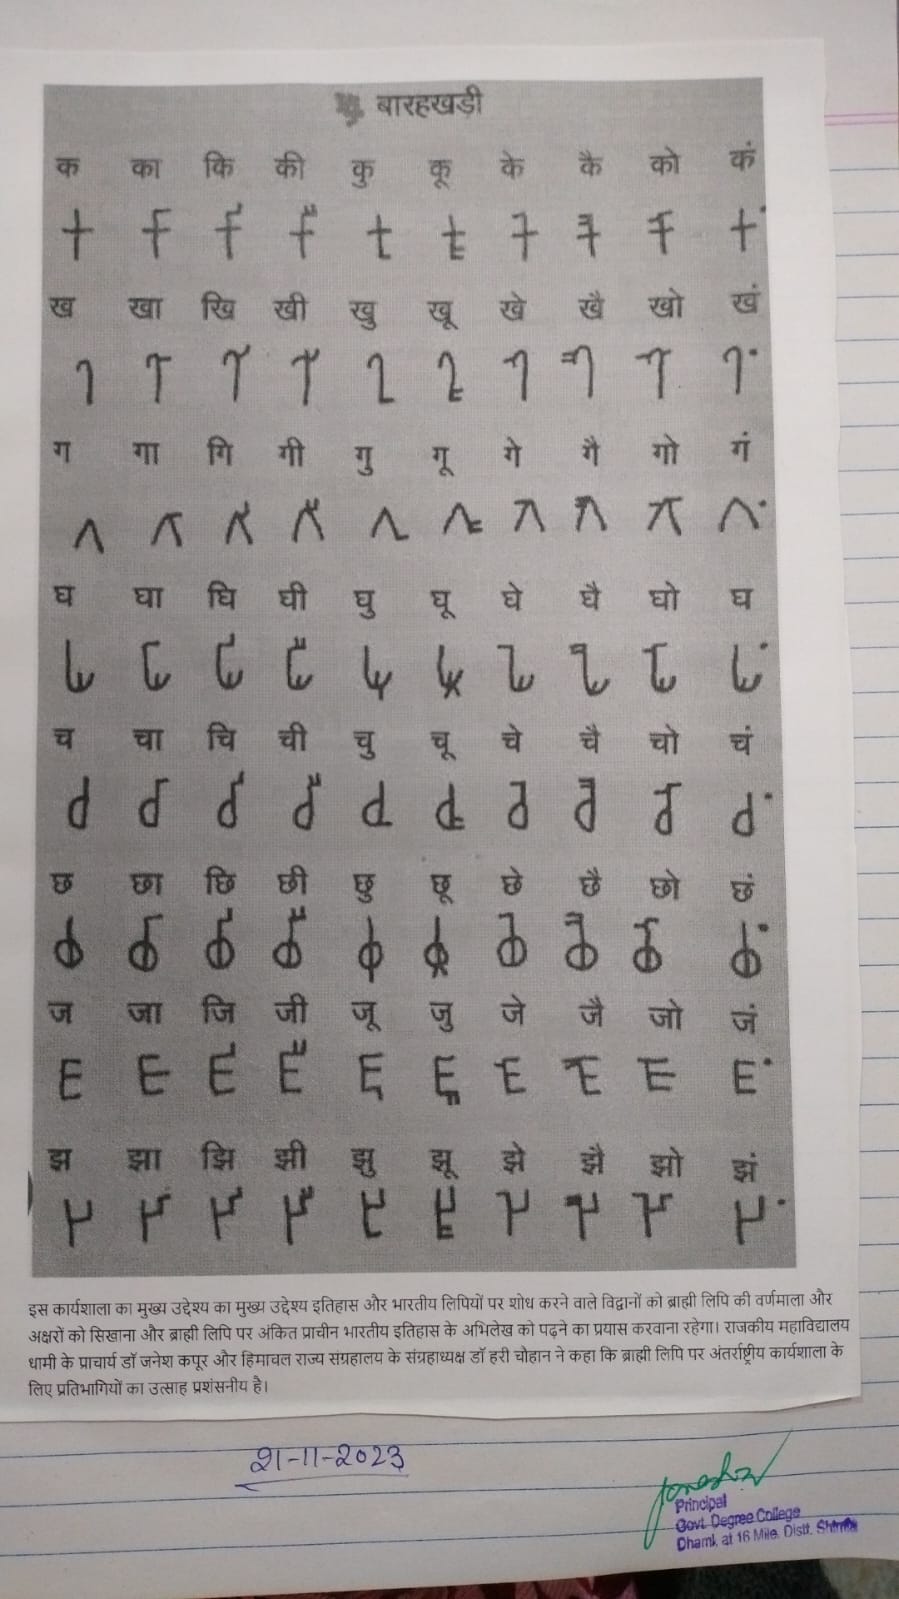 बारहखड़ी
क का कि की कु कू के कै को कं
𑀓 𑀓𑀸 𑀓𑀺 𑀓𑀻 𑀓𑀼 𑀓𑀽 𑀓𑁂 𑀓𑁃 𑀓𑁄 𑀓𑀁
ख खा खि खी खु खू खे खै खो खं
𑀔 𑀔𑀸 𑀔𑀺 𑀔𑀻 𑀔𑀼 𑀔𑀽 𑀔𑁂 𑀔𑁃 𑀔𑁄 𑀔𑀁
ग गा गि गी गु गू गे गै गो गं
𑀕 𑀕𑀸 𑀕𑀺 𑀕𑀻 𑀕𑀼 𑀕𑀽 𑀕𑁂 𑀕𑁃 𑀕𑁄 𑀕𑀁
घ घा घि घी घु घू घे घै घो घ
𑀖 𑀖𑀸 𑀖𑀺 𑀖𑀻 𑀖𑀼 𑀖𑀽 𑀖𑁂 𑀖𑁃 𑀖𑁄 𑀖𑀁
च चा चि ची चु चू चे चै चो चं
𑀘 𑀘𑀸 𑀘𑀺 𑀘𑀻 𑀘𑀼 𑀘𑀽 𑀘𑁂 𑀘𑁃 𑀘𑁄 𑀘𑀁
छ छा छि छी छु छू छे छै छो छं
𑀙 𑀙𑀸 𑀙𑀺 𑀙𑀻 𑀙𑀼 𑀙𑀽 𑀙𑁂 𑀙𑁃 𑀙𑁄 𑀙𑀁
ज जा जि जी जू जु जे जै जो जं
𑀚 𑀚𑀸 𑀚𑀺 𑀚𑀻 𑀚𑀼 𑀚𑀽 𑀚𑁂 𑀚𑁃 𑀚𑁄 𑀚𑀁
झ झा झि झी झु झू झे झै झो झं
𑀛 𑀛𑀸 𑀛𑀺 𑀛𑀻 𑀛𑀼 𑀛𑀽 𑀛𑁂 𑀛𑁃 𑀛𑁄 𑀛𑀁
इस कार्यशाला का मुख्य उद्देश्य का मुख्य उद्देश्य इतिहास और भारतीय लिपियों पर शोध करने वाले विद्वानों को ब्राह्मी लिपि की वर्णमाला और
अक्षरों को सिखाना और ब्राह्मी लिपि पर अंकित प्राचीन भारतीय इतिहास के अभिलेख को पढ़ने का प्रयास करवाना रहेगा। राजकीय महाविद्यालय
धामी के प्राचार्य डॉ जनेश कपूर और हिमाचल राज्य संग्रहालय के संग्रहाध्यक्ष डॉ हरी चौहान ने कहा कि ब्राह्मी लिपि पर अंतर्राष्ट्रीय कार्यशाला के
लिए प्रतिभागियों का उत्साह प्रशंसनीय है।
21-11-2023
Principal
Govt. Degree College
Dhami, at 16 Mile. Distt. Shimla